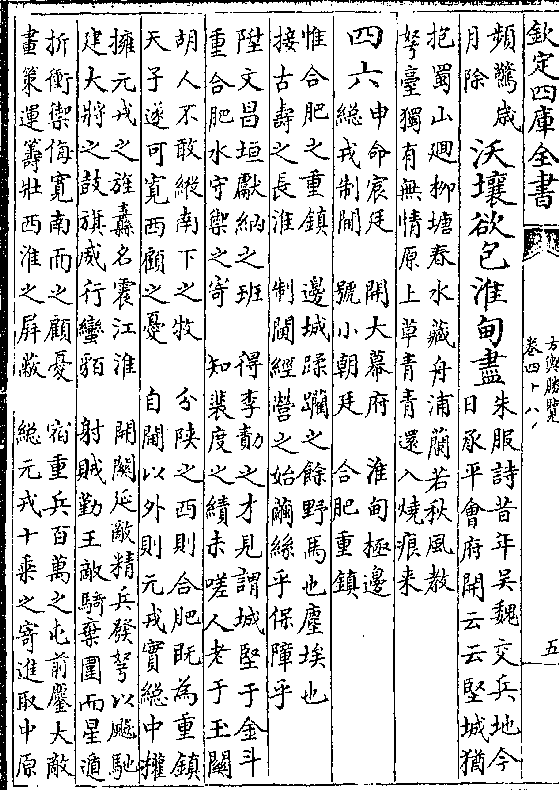 欽定四庫全書
方輿勝覽
卷四十八
五
頻驚歲
月除
沃壤欲包淮甸盡
朱服詩昔年吳魏交兵地今
日承平會府開云云堅城猶
抱蜀山迴柳塘春水藏舟浦蘭若秋風教
弩臺獨有無情原上草青青還入燒痕来
四六
申命宸廷　開大幕府　淮甸極邊
總戎制閫　號小朝廷　合肥重鎮
惟合肥之重鎮　邊城蹂躪之餘野馬也塵埃也
接古壽之長淮　制閫經營之始繭絲乎保障乎
陞文昌垣獻納之班　得李勣之才見謂城堅于金斗
重合肥水守禦之寄　知裴度之績未嗟人老于玉關
胡人不敢縱南下之牧　分陜之西則合肥既為重鎮
天子遂可寛西顧之憂　自閫以外則元戎實總中權
擁元戎之旌纛名震江淮　開關延敵精兵發弩以飈馳
建大將之鼓旗威行蠻貊　射賊勤王敵騎棄圍而星遁
折衝禦侮寛南面之顧憂　宿重兵百萬之屯前鏖大敵
畫策運籌壯西淮之屏蔽　總元戎十乗之寄進取中原